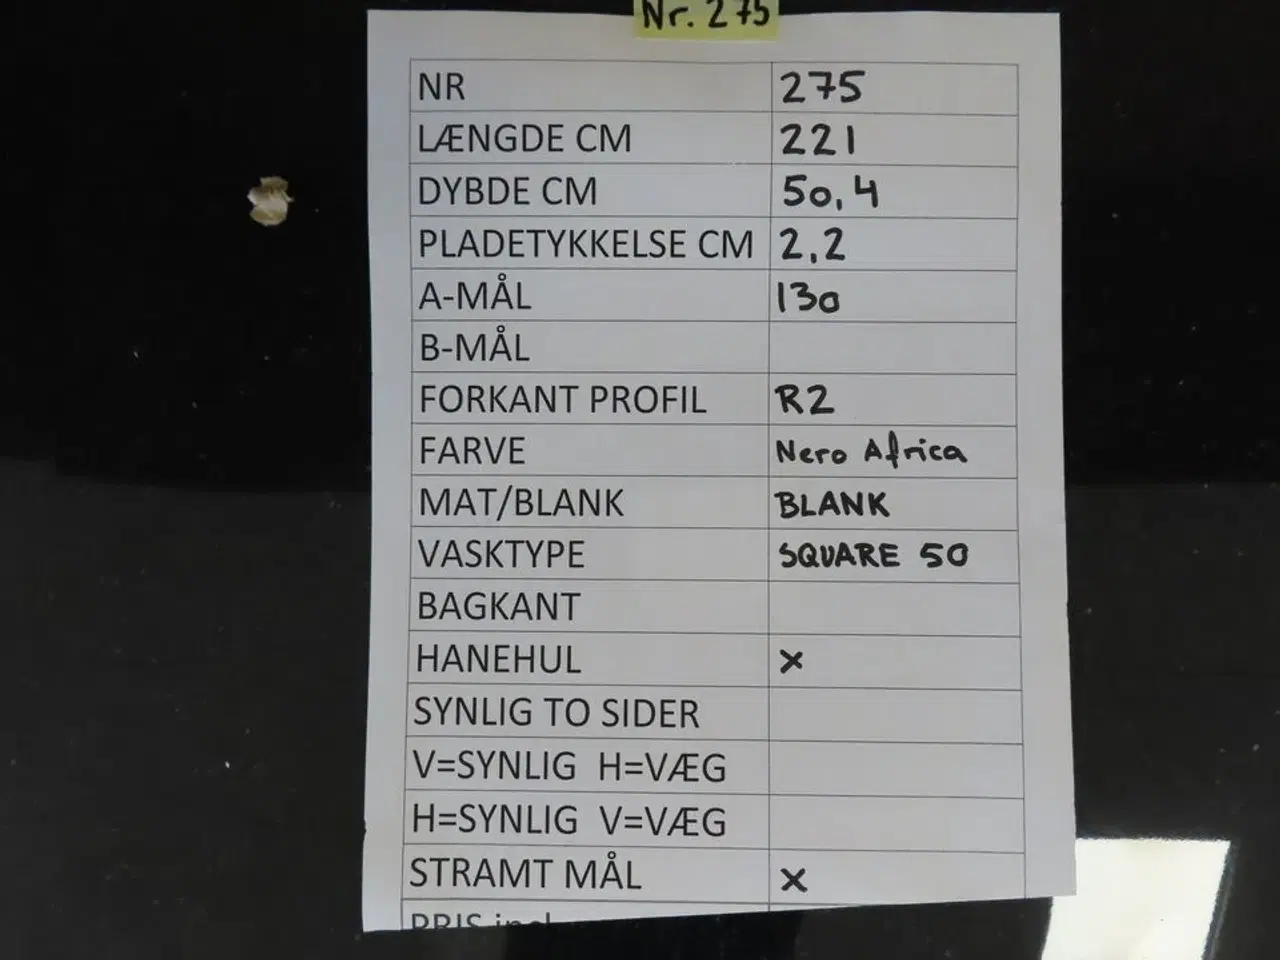 Nr. 275
NR 275
LÆNGDE CM 221
DYBDE CM 50,4
PLADETYKKELSE CM 2,2
A-MÅL 130
B-MÅL
FORKANT PROFIL R2
FARVE Nero Africa
MAT/BLANK BLANK
VASKTYPE SQUARE 50
BAGKANT
HANEHUL x
SYNLIG TO SIDER
V=SYNLIG H=VÆG
H=SYNLIG V=VÆG
STRAMT MÅL x
PRIS incl